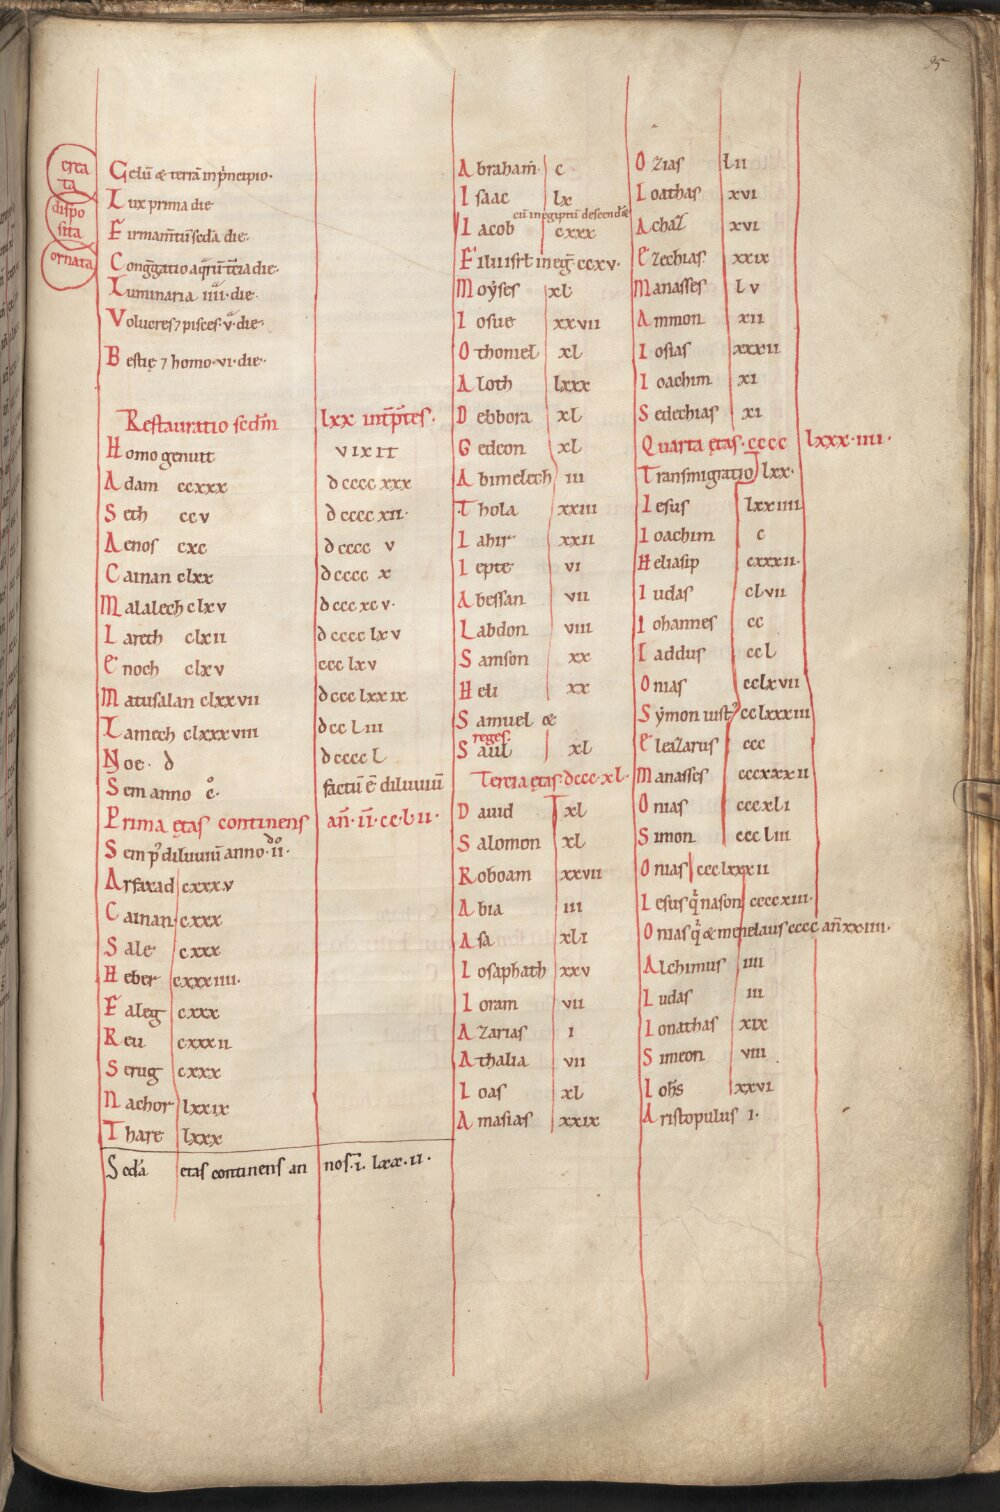 95
crea
ta
dispo
sita
ornata
Celū & terrā inp̄ncipio·
Lux prima die
Firmam̄tū sc̄da die·
Cong̅gatio aq̅rū t̅cia die·
Luminaria iiii· die·
Volucres ⁊ pisces· v· die·
Bestię ⁊ homo· vi· die·
Restauratio sc̄dm̄ lxx int̄p̄tes·
Homo genuit vixit
Adam ccxxx dcccc xxx
Seth ccv dcccc xii·
Aenos cxc dcccc v
Cainan clxx dcccc x
Malalech clxv dccc xcv·
Iareth clxii dcccc lxv
Enoch clxv ccc lxv
Matusalan clxxvii dccc lxxix
Lamech clxxxviii dcc liii
Noe· d dcccc l
Sem anno c̊· factū ē diluuiū
Prima ętas continens an̄· ii· cc· lii·
Sem p̄ diluuiū anno· ii·
Arfaxad cxxxv
Cainan cxxx
Sale cxxx
Heber cxxxiiii·
Faleg cxxx
Reu cxxxii
Serug cxxx
Nachor lxxix
Thare lxxx
Scd̄a etas continens an nos· ī· lxx· ii·
Abraham· c·
Isaac lx
cū in egiptū descend&
Iacob cxxx
Filii isrł in eg̅· ccxv·
Moẏses xl
Iosue xxvii
Othoniel xl
Aioth lxxx
Debbora xl
Gedeon xl
Abimelech iii
Thola xxiii
Iahir xxii
Iepte vi
Abessan vii
Labdon viii
Samson xx
Heli xx
Samuel &
reges·
Saul xl
Tercia ętas· dccc· xl·
Dauid xl
Salomon xl
Roboam xxvii
Abia iii
Asa xli
Iosaphath xxv
Ioram vii
Azarias i
Athalia vii
Ioas xl
Amasias xxix
Ozias lii
Ioathas xvi
Achaz xvi
Ezechias xxix
Manasses lv
Ammon xii
Iosias xxxii
Ioachim xi
Sedechias xi
Quarta ętas· cccc lxxx· iiii·
Transmigratio lxx·
Iesus lxxiiii
Ioachim c
Heliasip cxxxii·
Iudas clvii
Iohannes cc
Iaddus ccl
Onias cclxvii
Sẏmon iust᾽ cclxxxiii
Eleazarus ccc
Manasses cccxxxii
Onias cccxli
Simon cccliii
Onias ccclxxxii
Iesus q̄ nason ccccxiii·
Onias q̄ & menelaus cccc an̄ xxiiii·
Alchimus iiii
Iudas iii
Ionathas xix
Simeon viii
Ioh̄s xxvi
Aristopulus i·